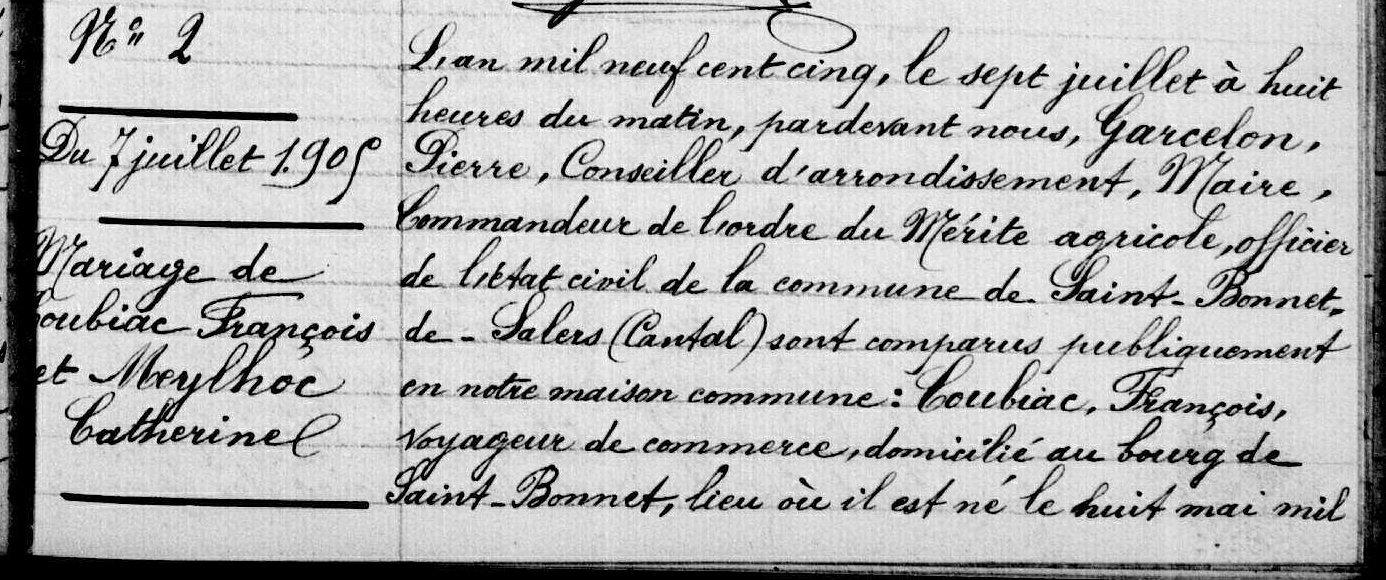 N° 2
Du 7 juillet 1905
Mariage de
Coubiac François
et Meylhoc
Catherine
L'an mil neuf cent cinq, le sept juillet à huit
heures du matin, pardevant nous, Garcelon,
Pierre, Conseiller d'arrondissement, Maire,
Commandeur de l'ordre du Mérite agricole, officier
de l'état civil de la commune de Saint-Bonnet-
de-Salers (Cantal) sont comparus publiquement
en notre maison commune: Coubiac, François,
voyageur de commerce, domicilié au bourg de
Saint-Bonnet, lieu où il est né le huit mai mil